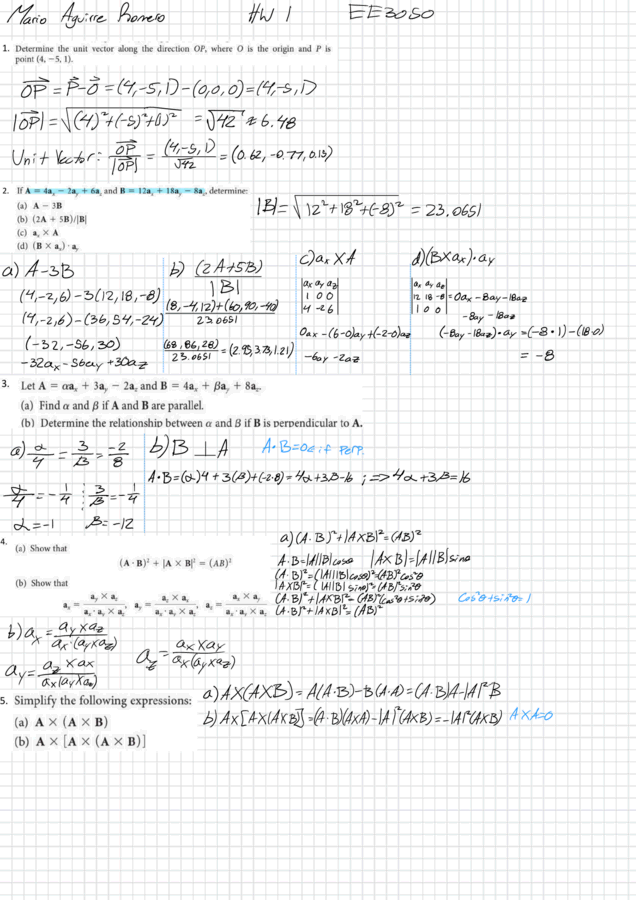 Mario Aguirre Romero HW 1 EE3050
1. Determine the unit vector along the direction OP, where O is the origin and P is
point (4, −5, 1).
OP = P-O = (4,-5,1)-(0,0,0)=(4,-5,1)
|OP| = √(4)²+(-5)²+(1)² = √42 ≈ 6.48
Unit Vector: OP/|OP| = (4,-5,1)/√42 = (0.62, -0.77, 0.15)
2. If A = 4aₓ − 2aᵧ + 6a_z and B = 12aₓ + 18aᵧ − 8a_z, determine:
(a) A − 3B
(b) (2A + 5B)/|B|
(c) aₓ × A
(d) (B × aₓ) · aᵧ
|B| = √12²+18²+(-8)² = 23.0651
a) A-3B
(4,-2,6)-3(12,18,-8)
(4,-2,6)-(36,54,-24)
(-32,-56,30)
-32ax-56ay+30az
b) (2A+5B)/|B|
(8,-4,12)+(60,90,-40)/23.0651
(68,86,-28)/23.0651 = (2.95,3.73,1.21)
c) ax X A
ax ay az
1 0 0
4 -2 6
0ax-(6-0)ay+(-2-0)az
-6ay-2az
d) (BXax)·ay
ax ay az
12 18 -8 = 0ax-8ay-18az
1 0 0 -8ay-18az
(-8ay-18az)·ay=(-8·1)-(18·0)
= -8
3. Let A = αaₓ + 3aᵧ − 2a_z and B = 4aₓ + βaᵧ + 8a_z.
(a) Find α and β if A and B are parallel.
(b) Determine the relationship between α and β if B is perpendicular to A.
a) α/4 = 3/β = -2/8
α/4 = -1/4 ; 3/β = -1/4
α=-1 β=-12
b) B ⊥ A A·B=0 ∈ if perp.
A·B=(α)4+3(β)+(-2·8)=4α+3β-16 ; => 4α+3β=16
4.
(a) Show that
(A · B)² + |A × B|² = (AB)²
(b) Show that
aₓ = aᵧ × a_z / aₓ · aᵧ × a_z, aᵧ = a_z × aₓ / aₓ · aᵧ × a_z, a_z = aₓ × aᵧ / aₓ · aᵧ × a_z
a) (A·B)²+|AXB|²=(AB)²
A·B=|A||B|cosθ |AXB|=|A||B|sinθ
(A·B)²=(|A||B|cosθ)²=(AB)²cos²θ
|AXB|²=(|A||B|sinθ)²=(AB)²sin²θ
(A·B)²+|AXB|²=(AB)²(cos²θ+sin²θ) cos²θ+sin²θ=1
(A·B)²+|AXB|²=(AB)²
b) ax = ay X az / ax·(ay X az)
ay = az X ax / ax(ay X az)
az = ax X ay / ax(ay X az)
5. Simplify the following expressions:
(a) A × (A × B)
(b) A × [A × (A × B)]
a) AX(AXB)=A(A·B)-B(A·A)=(A·B)A-|A|²B
b) AX[AX(AXB)]=(A·B)(AXA)-|A|²(AXB)=-|A|²(AXB) AXA=0